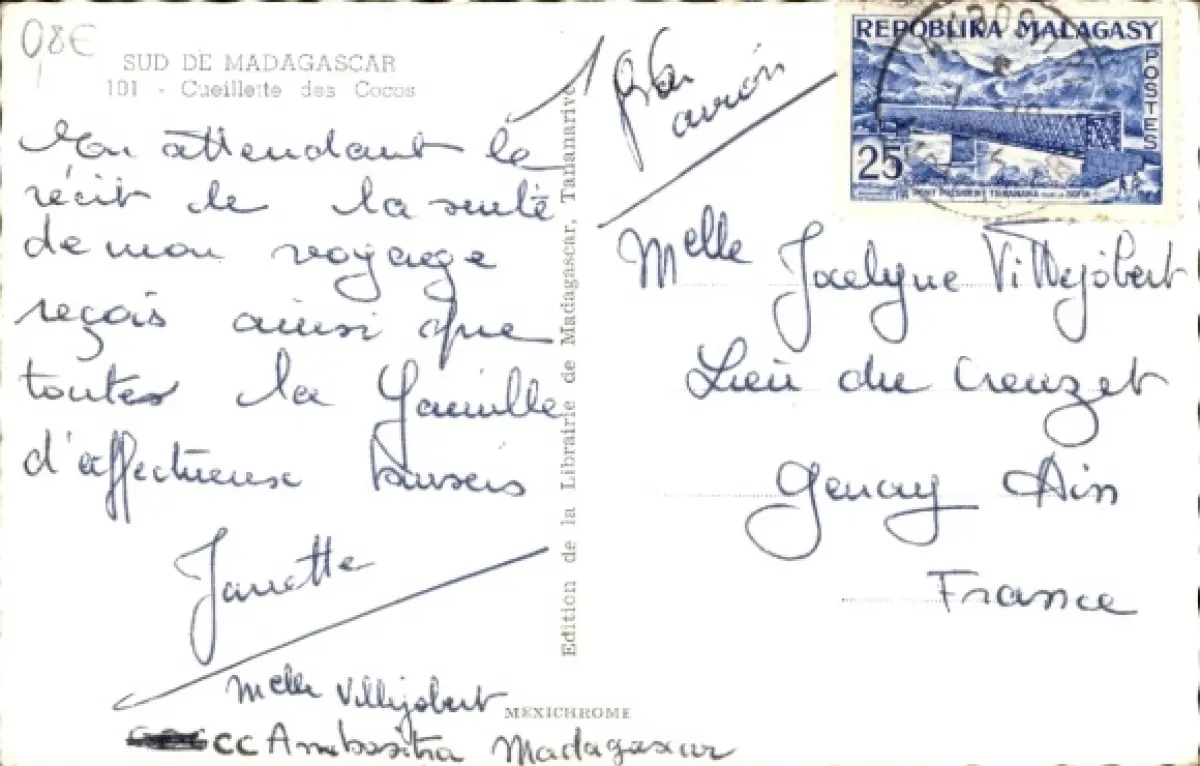 0,8€
SUD DE MADAGASCAR
101 - Cueillette des Cocos
En attendant le
récit de la suite
de mon voyage
reçois ainsi que
toutes la famille
d'affectueux baisers
Janette
Melle Villejobert
CC Ambositra Madagascar
Edition de la Librairie de Madagascar, Tananarive
MEXICHROME
Par
avion
REPOBLIKA MALAGASY
POSTES
25F
PONT PRESIDENT TSIRANANA SUR LA SOFIA
Melle Jocelyne Villejobert
Lieu du Creuzet
Genay Ain
France